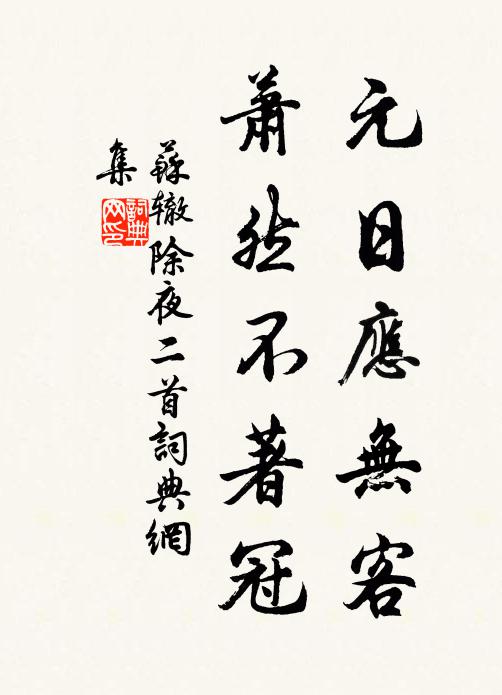 元日應無客
蕭然不著冠
蘇轍除夜二首詞典網
集
詞典
网印